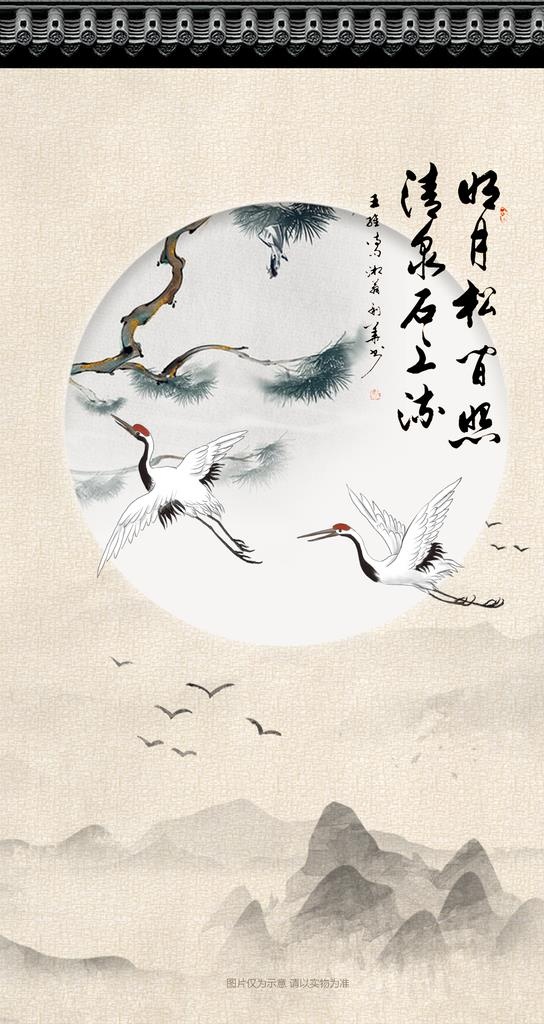 明月松间照
清泉石上流
王维
图片仅为示意 请以实物为准